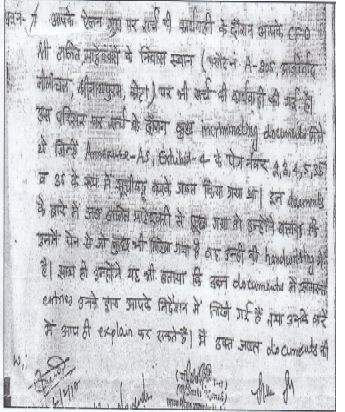 प्रश्न-7 आपके ऐलन ग्रुप पर सर्च की कार्यवाही के दौरान आपके CFO
श्री ललित माहेश्वरी के निवास स्थान ( A-805, आशीर्वाद
, श्रीनाथपुरम, कोटा) पर भी सर्च की कार्यवाही की गई है।
उस परिसर पर सर्च के दौरान कुछ incriminating documents मिले
थे जिन्हें Annexure-AS, Exhibit-4 के पेज नंबर 2,3,4,5,
व 36 के रूप में सूचीबद्ध करके जब्त किया गया था। इन documents
के बारे में जब ललित माहेश्वरी से पूछा गया तो उन्होंने बताया कि
उनमें पेन से जो कुछ भी लिखा गया है वह उन्हीं की handwriting में
है। साथ ही उन्होंने यह भी बताया कि उक्त documents में
entries उनके द्वारा आपके निर्देशन में लिखी गई हैं तथा उनके बारे
में आप ही explain कर सकते हैं। मैं उक्त जब्त documents की